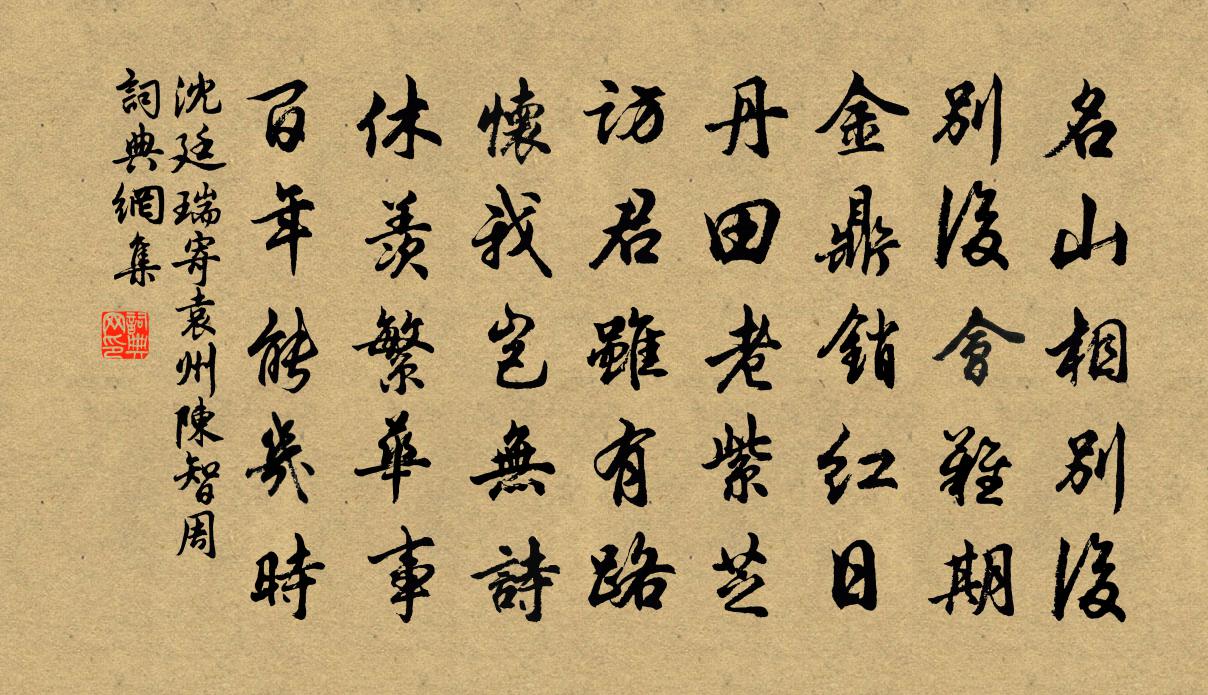 名山相別後
別後會難期
金鼎銷紅日
丹田老紫芝
訪君雖有路
懷我豈無詩
休羨繁華事
百年能幾時
沈廷瑞寄袁州陳智周
詞典網集
詞典
网印